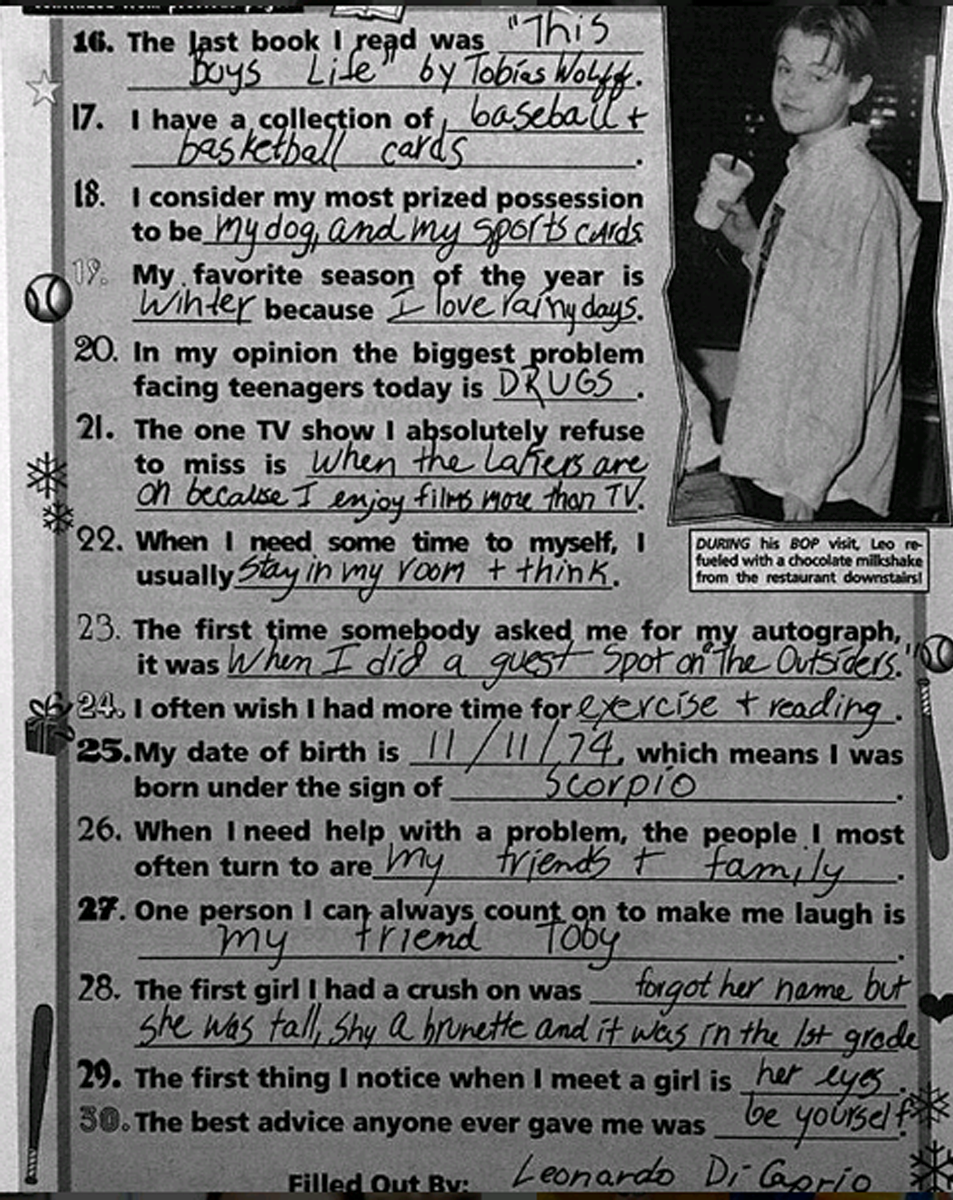 16. The last book I read was "This
Boys Life" by Tobias Wolff.
17. I have a collection of baseball +
basketball cards.
18. I consider my most prized possession
to be my dog, and my sports cards
19. My favorite season of the year is
Winter because I love rainy days.
20. In my opinion the biggest problem
facing teenagers today is DRUGS.
21. The one TV show I absolutely refuse
to miss is when the Lakers are
on because I enjoy films more than TV.
22. When I need some time to myself, I
usually stay in my room + think.
DURING his BOP visit, Leo re-
fueled with a chocolate milkshake
from the restaurant downstairs!
23. The first time somebody asked me for my autograph,
it was When I did a guest spot on "The Outsiders."
24. I often wish I had more time for exercise + reading.
25. My date of birth is 11/11/74, which means I was
born under the sign of Scorpio.
26. When I need help with a problem, the people I most
often turn to are my friends + family.
27. One person I can always count on to make me laugh is
my friend Toby.
28. The first girl I had a crush on was forgot her name but
she was tall, shy a brunette and it was in the 1st grade
29. The first thing I notice when I meet a girl is her eyes.
30. The best advice anyone ever gave me was be yourself.
Filled Out By: Leonardo DiCaprio